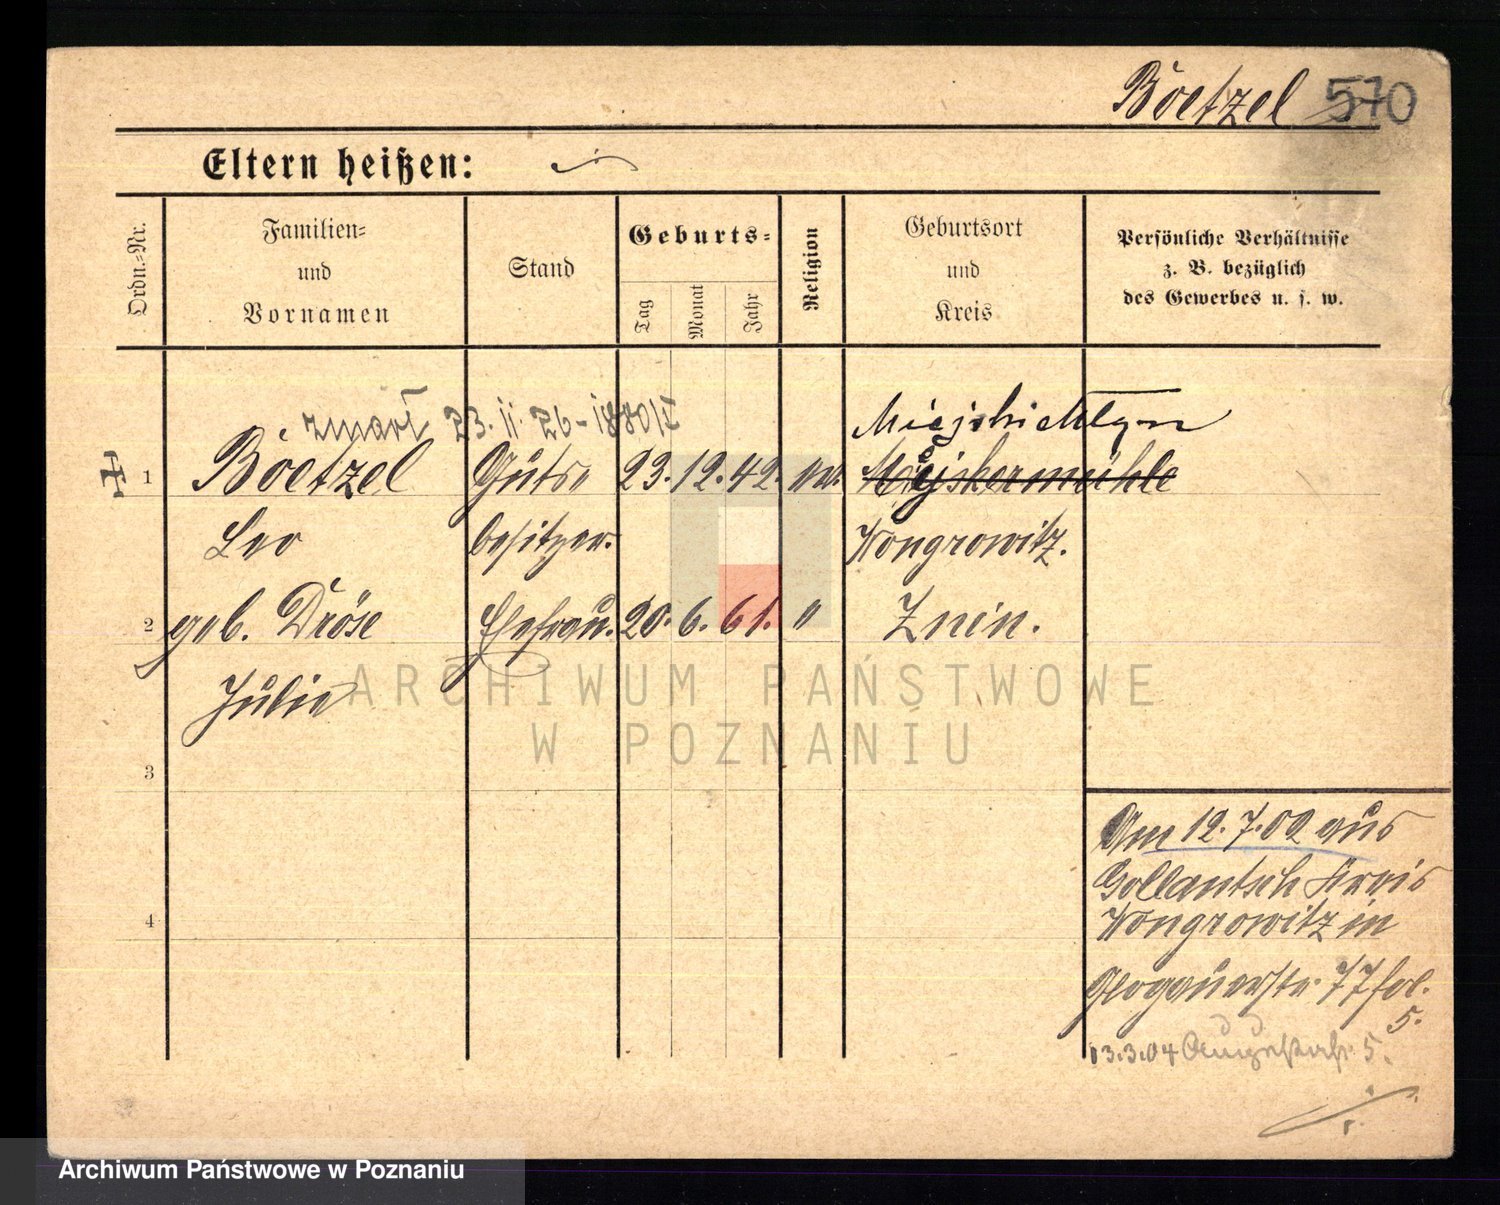 Boetzel 570
Eltern heißen:
Ordn.-Nr.
Familien=
und
Vornamen
Stand
Geburts=
Tag
Monat
Jahr
Religion
Geburtsort
und
Kreis
Persönliche Verhältnisse
z. B. bezüglich
des Gewerbes u. s. w.
zmarł 23. 11. 26 - 1880/I
1 Boetzel Guts= 23. 12. 42. Miejskermühle
Leo besitzer. Wongrowitz.
2 geb. Dröse Ehefrau. 20. 6. 61. " Znin.
Julie
3
4
Am 12. 7. 02 aus
Gollantsch Kreis
Wongrowitz in
Glogauerstr. 77 fol.
5.
13.3.04 Augustastr. 5.
ARCHIWUM PAŃSTWOWE
W POZNANIU
Archiwum Państwowe w Poznaniu